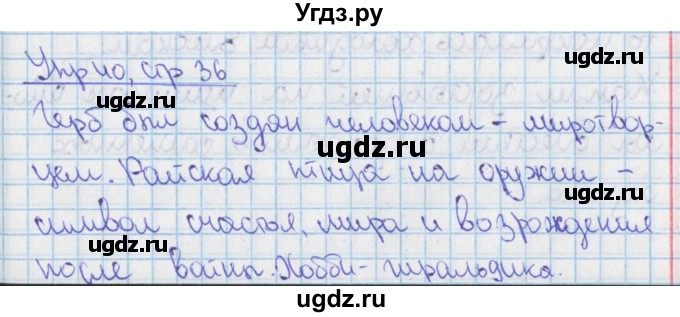 Угдз.ру
Упр 40, стр 36
ugdz.ru
ugdz.ru
Герб был создан человеком - миротвор-
ugdz.ru
цем. Райская птица на оружии -
ugdz.ru
ugdz.ru
символ счастья, мира и возрождения
ugdz.ru
после войны. Хобби - геральдика.
ugdz.ru